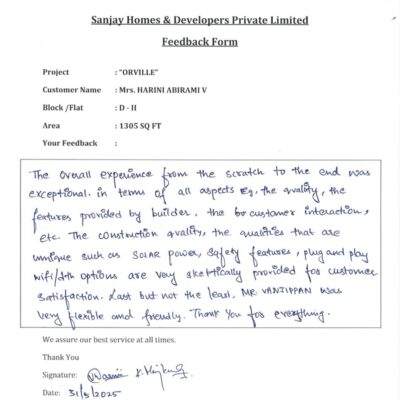 Sanjay Homes & Developers Private Limited
Feedback Form
Project : "ORVILLE"
Customer Name : Mrs. HARINI ABIRAMI V
Block /Flat : D - II
Area : 1305 SQ FT
Your Feedback :
The overall experience from the scratch to the end was
exceptional. in terms of all aspects Eg, the quality, the
features provided by builder, the customer interaction,
etc. The construction quality, the qualities that are
unnique such as SOLAR power, Safety features, plug and play
wifi/dth options are very skettically provided for customer
satisfaction. Last but not the least, MR VANJIPPAN was
very flexible and friendly. Thank You for everything.
We assure our best service at all times.
Thank You
Signature:
Date: 31/5/2025